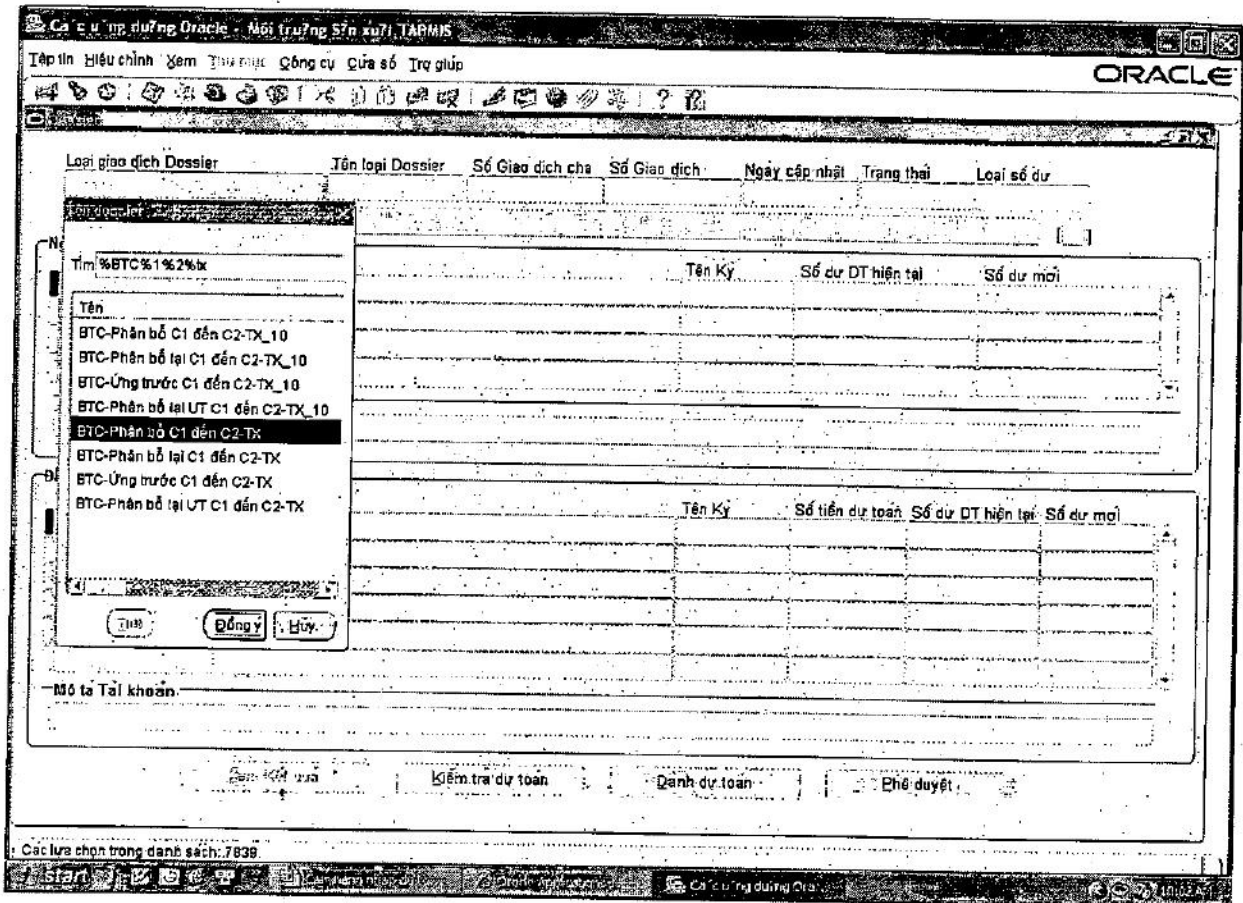 Ca c u ng du?ng Oracle - Môi tru?ng S?n xu?t TABMIS
Tập tin Hiệu chỉnh Xem Thư mục Công cụ Cửa sổ Trợ giúp
ORACLE
Loại giao dịch Dossier Tên loại Dossier Số Giao dịch cha Số Giao dịch Ngày cập nhật Trạng thái Loại số dư
Tìm %BTC%1%2%tx
Tên Kỳ Số dư DT hiện tại Số dư mới
Tên
BTC-Phân bổ C1 đến C2-TX_10
BTC-Phân bổ lại C1 đến C2-TX_10
BTC-Ứng trước C1 đến C2-TX_10
BTC-Phân bổ lại UT C1 đến C2-TX_10
BTC-Phân bổ C1 đến C2-TX
BTC-Phân bổ lại C1 đến C2-TX
BTC-Ứng trước C1 đến C2-TX
BTC-Phân bổ lại UT C1 đến C2-TX
Tên Kỳ Số tiền dự toán Số dư DT hiện tại Số dư mới
Tìm Đồng ý Hủy
Mô tả Tài khoản
Xem Kết quả Kiểm tra dự toán Dành dự toán Phê duyệt
Các lựa chọn trong danh sách: 7839
start Ca c u ng du?ng Ora